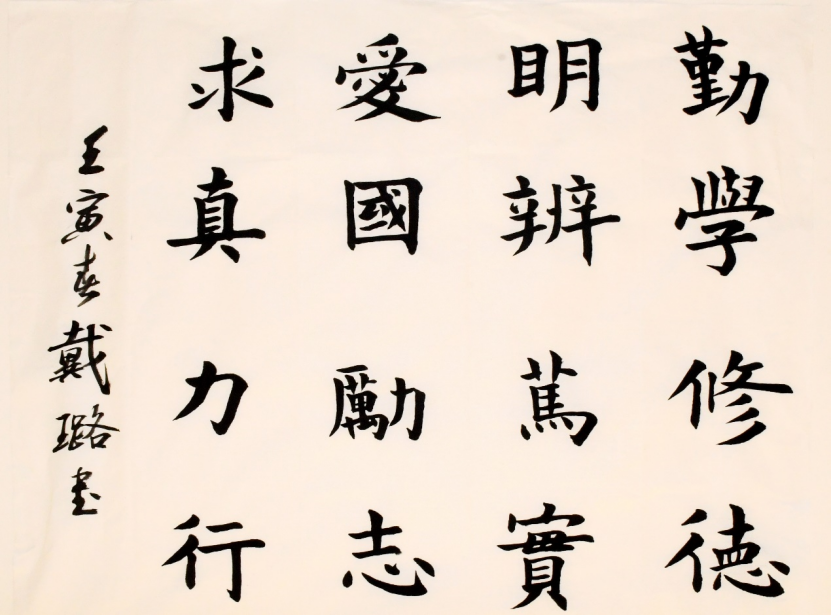 勤學修德
明辨篤實
愛國勵志
求真力行
壬寅春戴璐書